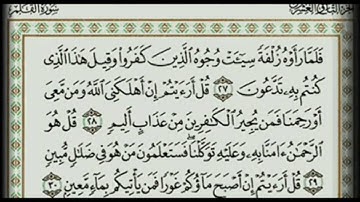 سُورَةُ القَلَمِ
فَلَمَّا رَأَوْهُ زُلْفَةً سِيٓـَٔتْ وُجُوهُ ٱلَّذِينَ كَفَرُوا۟ وَقِيلَ هَـٰذَا ٱلَّذِى
كُنتُم بِهِۦ تَدَّعُونَ ٢٧ قُلْ أَرَءَيْتُمْ إِنْ أَهْلَكَنِىَ ٱللَّهُ وَمَن مَّعِىَ
أَوْ رَحِمَنَا فَمَن يُجِيرُ ٱلْكَـٰفِرِينَ مِنْ عَذَابٍ أَلِيمٍ ٢٨ قُلْ هُوَ
ٱلرَّحْمَـٰنُ ءَامَنَّا بِهِۦ وَعَلَيْهِ تَوَكَّلْنَا فَسَتَعْلَمُونَ مَنْ هُوَ فِى ضَلَـٰلٍ مُّبِينٍ
٢٩ قُلْ أَرَءَيْتُمْ إِنْ أَصْبَحَ مَآؤُكُمْ غَوْرًا فَمَن يَأْتِيكُم بِمَآءٍ مَّعِينٍۭ ٣٠